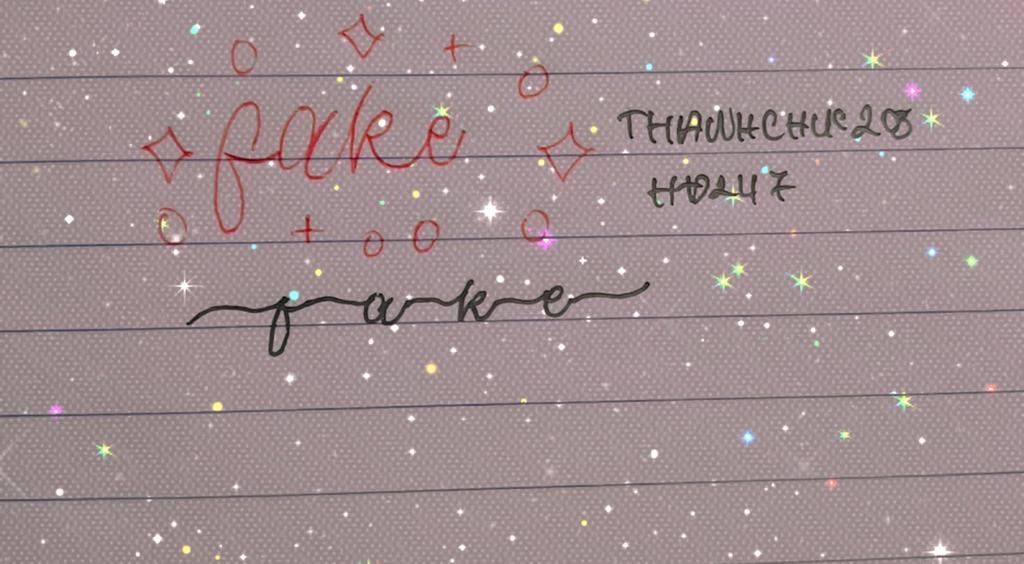 fake
THANHCHUC203
HD247
fake